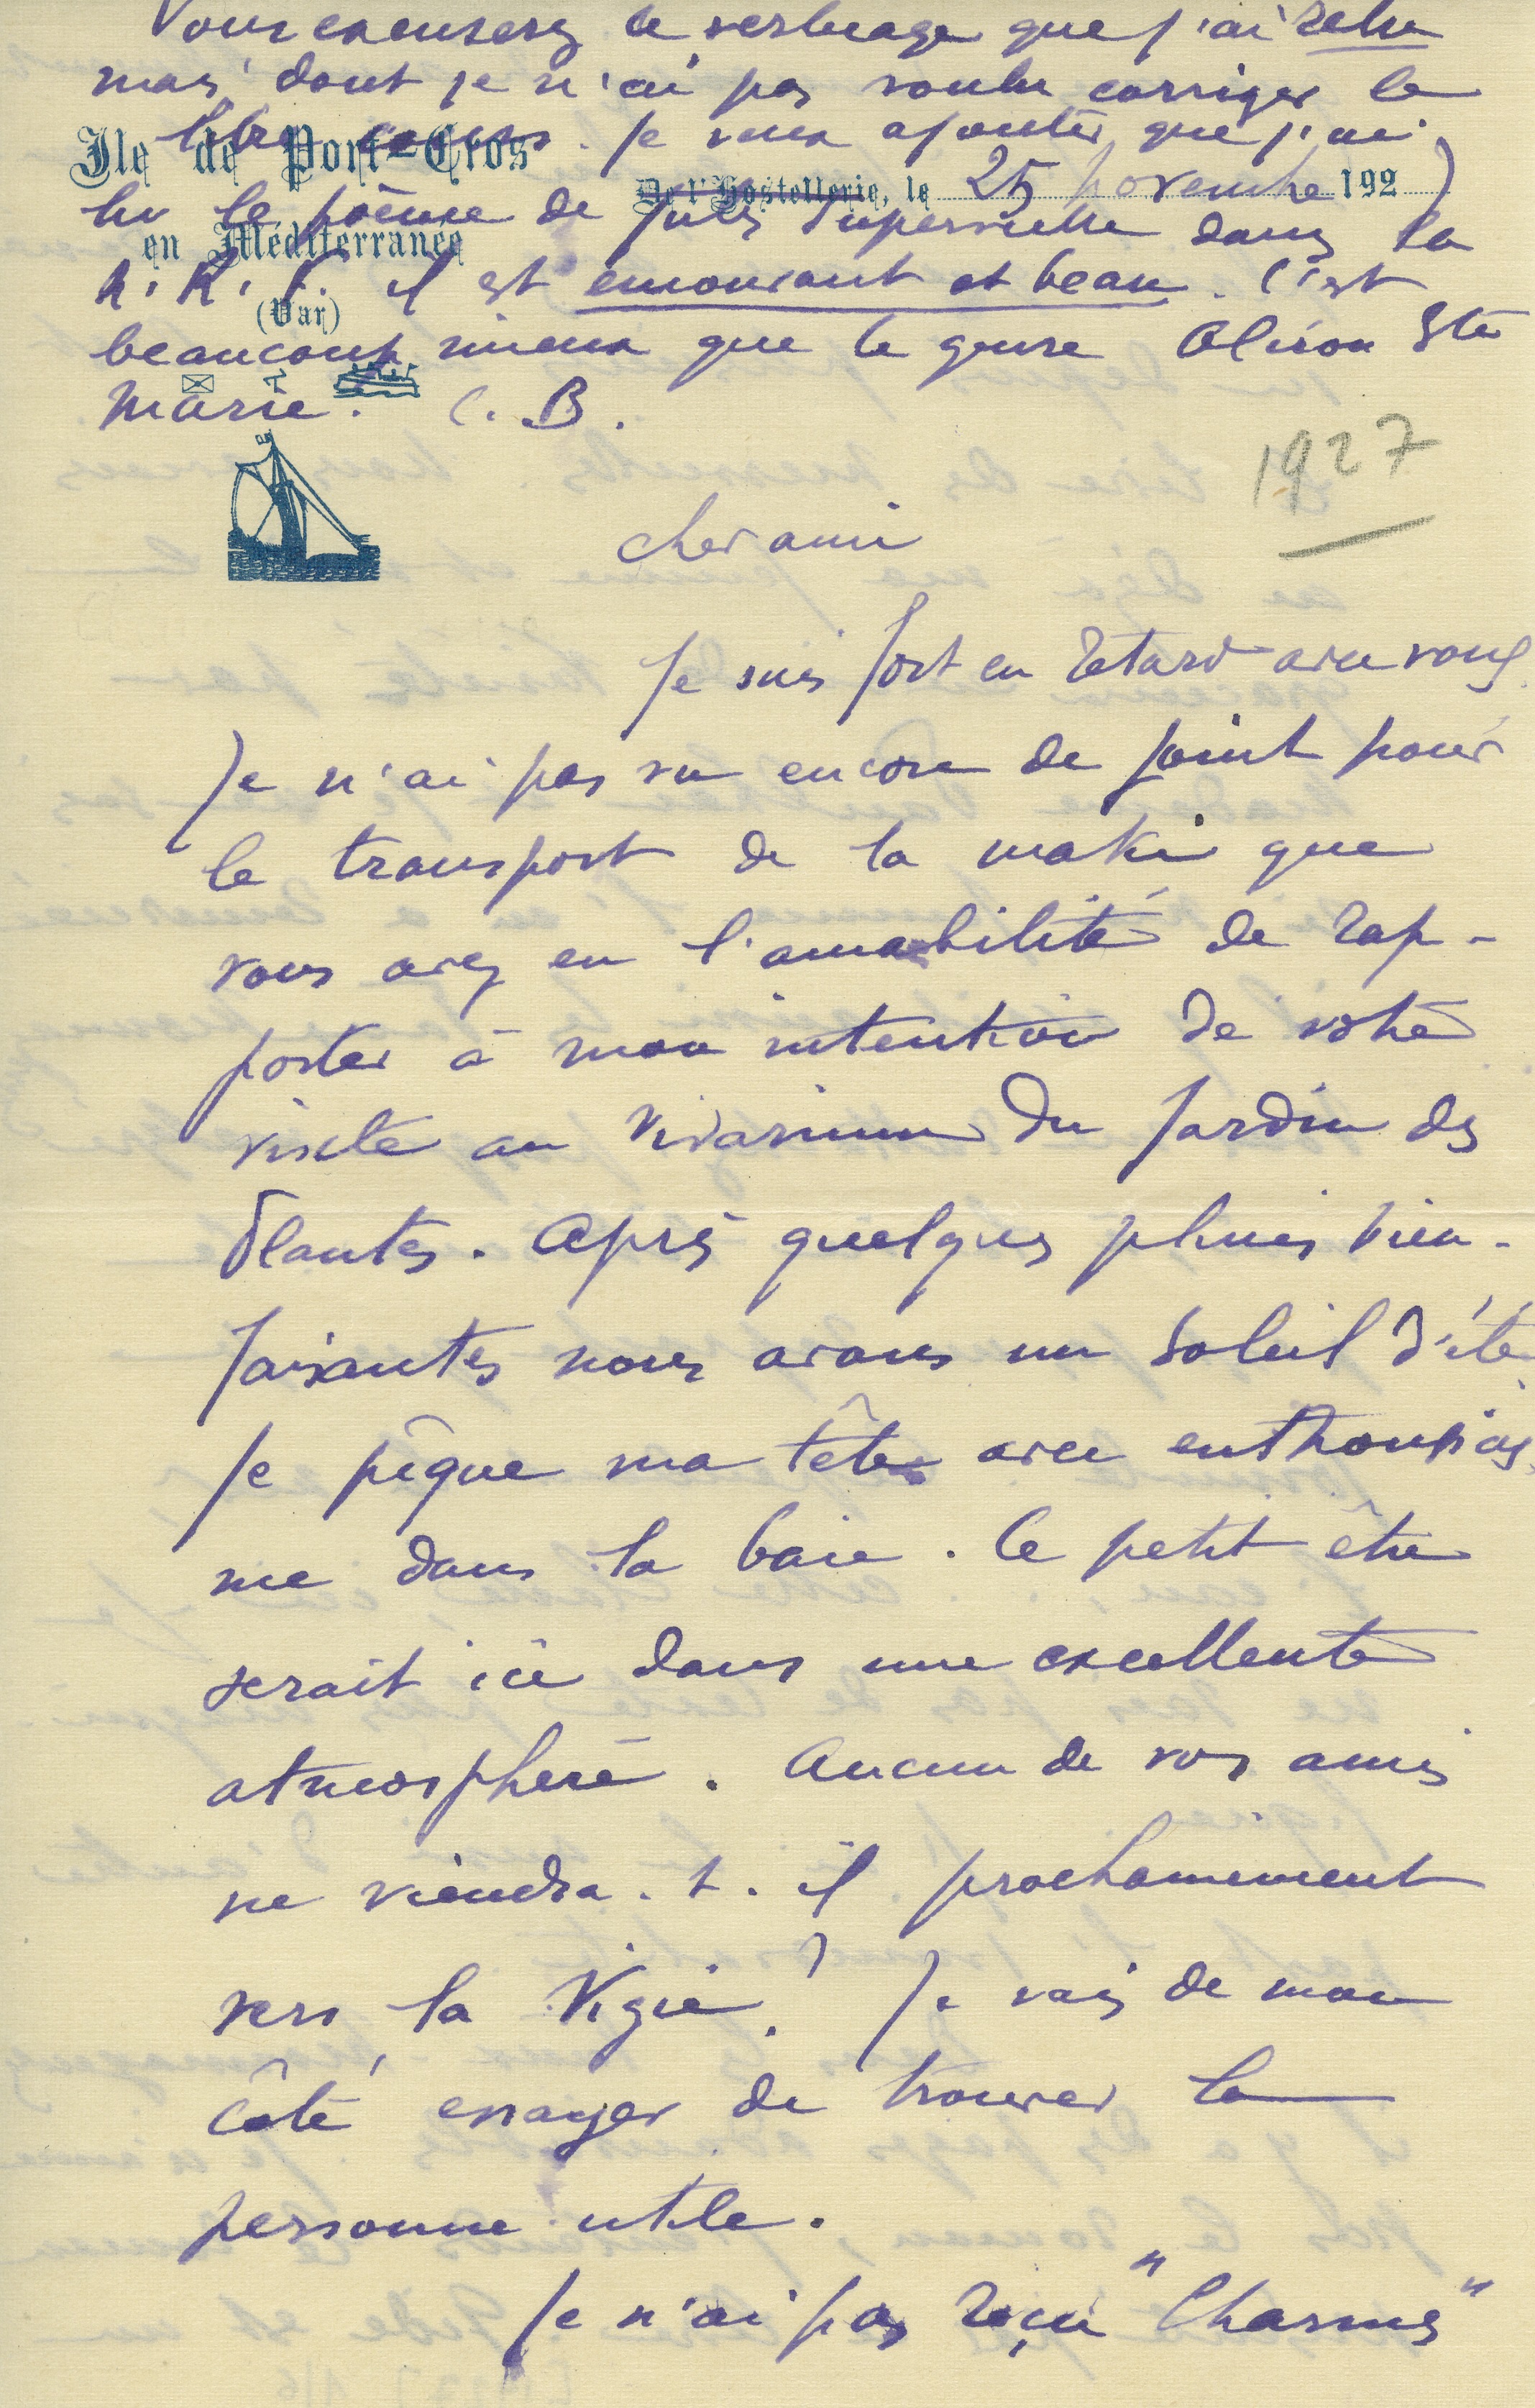 Vous excuserez le verbiage que j'ai relu
mais dont je n'ai pas voulu corriger le
libre cours. Je veux ajouter que j'ai
lu le poème de Jules Supervielle dans la
N.R.F. il est émouvant et beau. C'est
beaucoup mieux que le genre Oloron Ste
Marie. C. B.
Ile de Port-Cros
en Méditerranée
(Var)
De l'Hostellerie, le 25 novembre 192
1927
Cher ami
Je suis fort en retard avec vous.
Je n'ai pas vu encore de joint pour
le transport de la maki que
vous avez eu l'amabilité de rap-
porter à mon intention de votre
visite au vivarium du Jardin des
Plantes. Après quelques pluies bien-
faisantes nous avons un soleil d'été
Je pique ma tête avec enthousias-
me dans la baie. Ce petit être
serait ici dans une excellente
atmosphère. Aucun de vos amis
ne viendra-t-il prochainement
vers la Vigie? Je vais de mon
côté essayer de trouver la
personne utile.
Je n'ai pas reçu "Charmes"